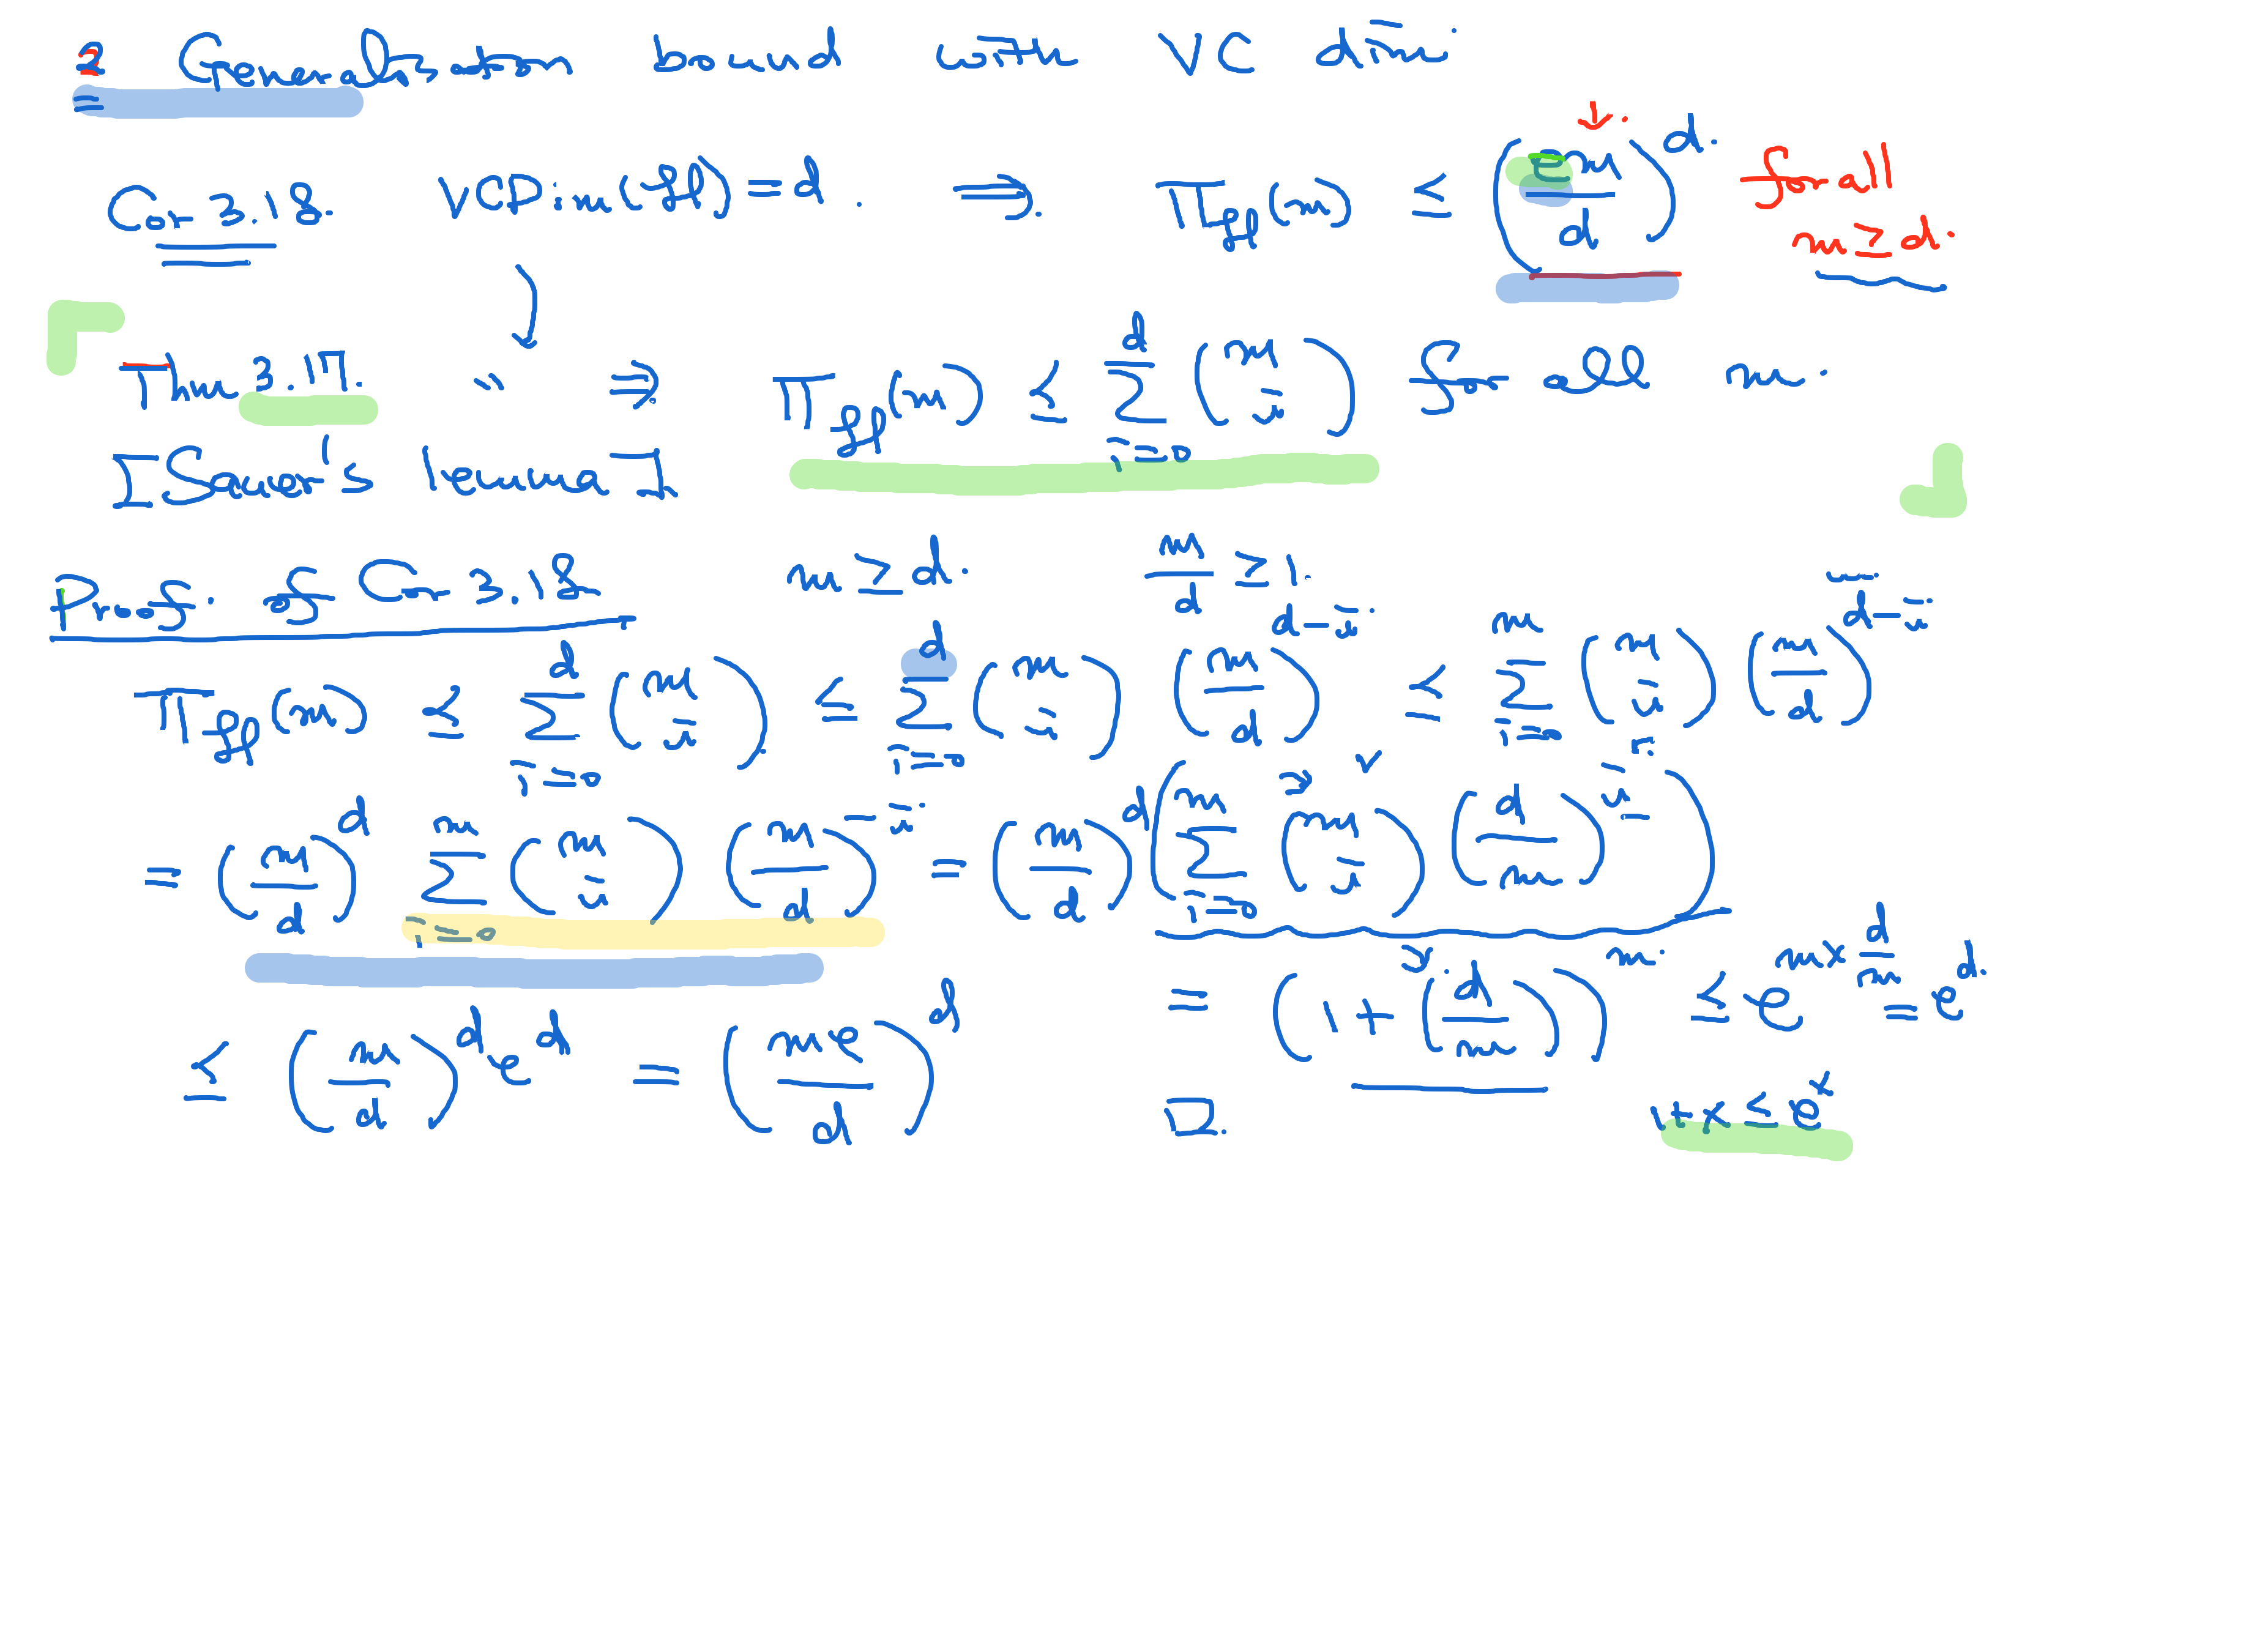 2 Generalization bound with VC dim.
Cor 3.18. VCDim(H) = d. ⇒ Π_H(m) ≤ (em/d)^d. for all m ≥ d.
Thm 3.17. " ⇒ Π_H(m) ≤ Σ_{i=0}^{d} (m i) for all m.
[Sauer's lemma].
Proof of Cor 3.18 m ≥ d. m/d ≥ 1.
Π_H(m) ≤ Σ_{i=0}^{d} (m i) ≤ Σ_{i=0}^{d} (m i) (m/d)^{d-i} ≤ Σ_{i=0}^{m} (m i) (m/d)^{d-i}
= (m/d)^d Σ_{i=0}^{m} (m i) (m/d)^{-i} = (m/d)^d (Σ_{i=0}^{m} (m i) (d/m)^i)
= (1 + (d/m))^m ≤ e^{m × d/m} = e^d.
≤ (m/d)^d e^d = (me/d)^d □. 1+x ≤ e^x